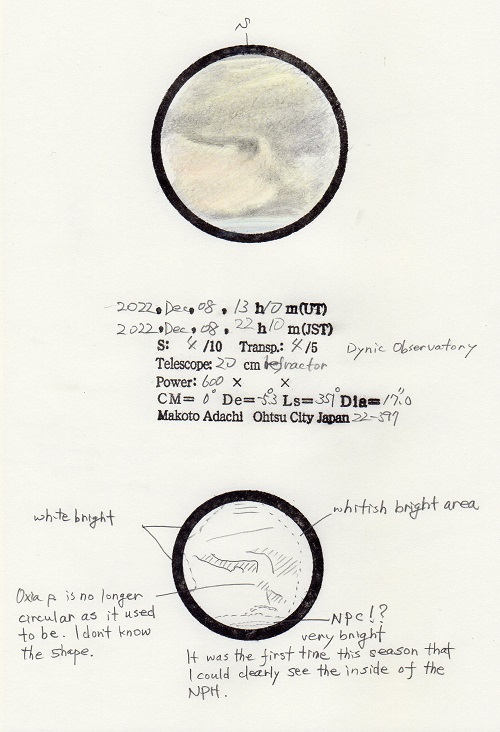 S
2022, Dec, 08, 13 h 10 m(UT)
2022, Dec, 08, 22 h 10 m(JST)
S: 4 /10 Transp.: 4 /5
Dynic Observatory
Telescope: 20 cm refractor
Power: 600 × ×
CM= 0° De= -5.3° Ls= 351° Dia= 17.0"
Makoto Adachi Ohtsu City Japan 22-397
white bright
whitish bright area
Oxia p is no longer
circular as it used
to be. I don't know
the shape.
NPC!?
very bright
It was the first time this season that
I could clearly see the inside of the
NPH.